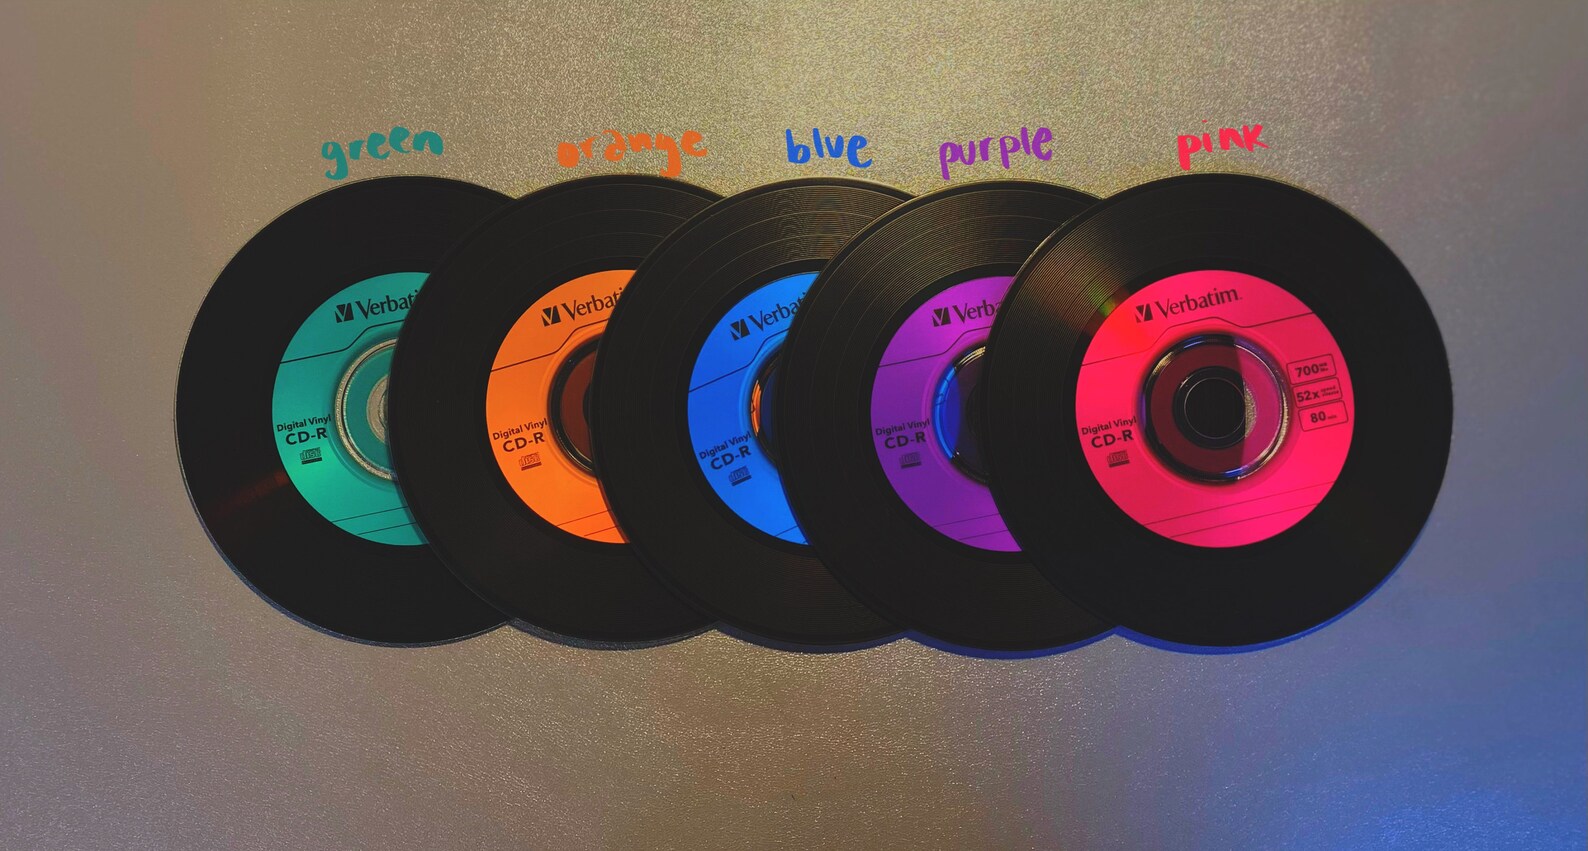 green orange blue purple pink
Verbati
Digital Vinyl
CD-R
Verbati
Digital Vinyl
CD-R
Verba
Digital Vinyl
CD-R
Verb
Digital Vinyl
CD-R
Verbatim.
Digital Vinyl
CD-R
700
52x
80 min